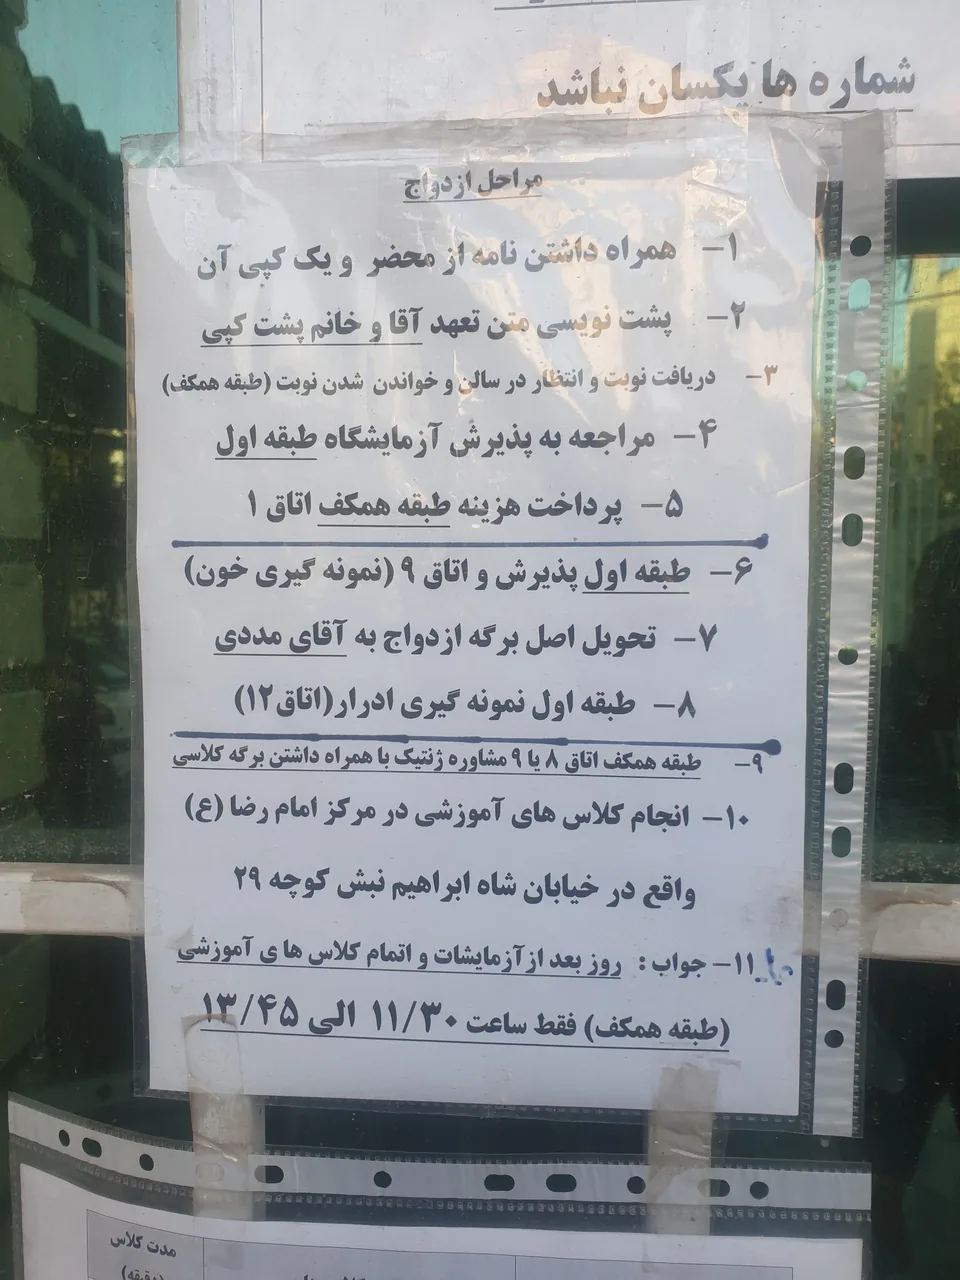 شماره ها یکسان نباشد
مراحل ازدواج
۱- همراه داشتن نامه از محضر و یک کپی آن
۲- پشت نویسی متن تعهد آقا و خانم پشت کپی
۳- دریافت نوبت و انتظار در سالن و خواندن شدن نوبت (طبقه همکف)
۴- مراجعه به پذیرش آزمایشگاه طبقه اول
۵- پرداخت هزینه طبقه همکف اتاق ۱
۶- طبقه اول پذیرش و اتاق ۹ (نمونه گیری خون)
۷- تحویل اصل برگه ازدواج به آقای مددی
۸- طبقه اول نمونه گیری ادرار(اتاق۱۲)
۹- طبقه همکف اتاق ۸ یا ۹ مشاوره ژنتیک با همراه داشتن برگه کلاسی
۱۰- انجام کلاس های آموزشی در مرکز امام رضا (ع)
واقع در خیابان شاه ابراهیم نبش کوچه ۲۹
۱۱- جواب : روز بعد از آزمایشات و اتمام کلاس ها ی آموزشی
(طبقه همکف) فقط ساعت ۱۱/۳۰ الی ۱۳/۴۵
مدت کلاس
(دقیقه)